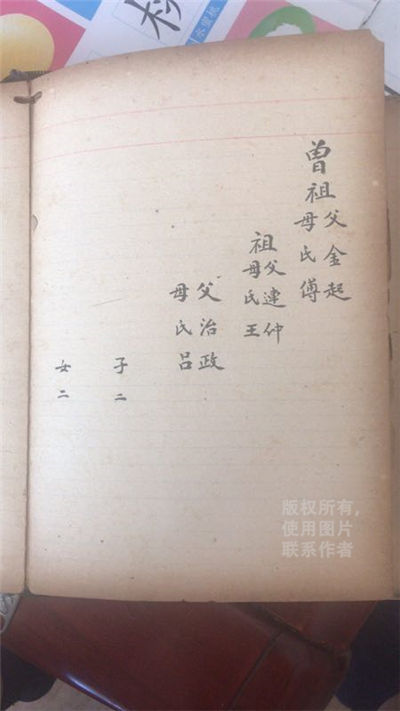 曾祖
父金起
母氏傅
祖
父建仲
母氏王
父治政
母氏吕
子二
女二
版权所有,
使用图片
联系作者